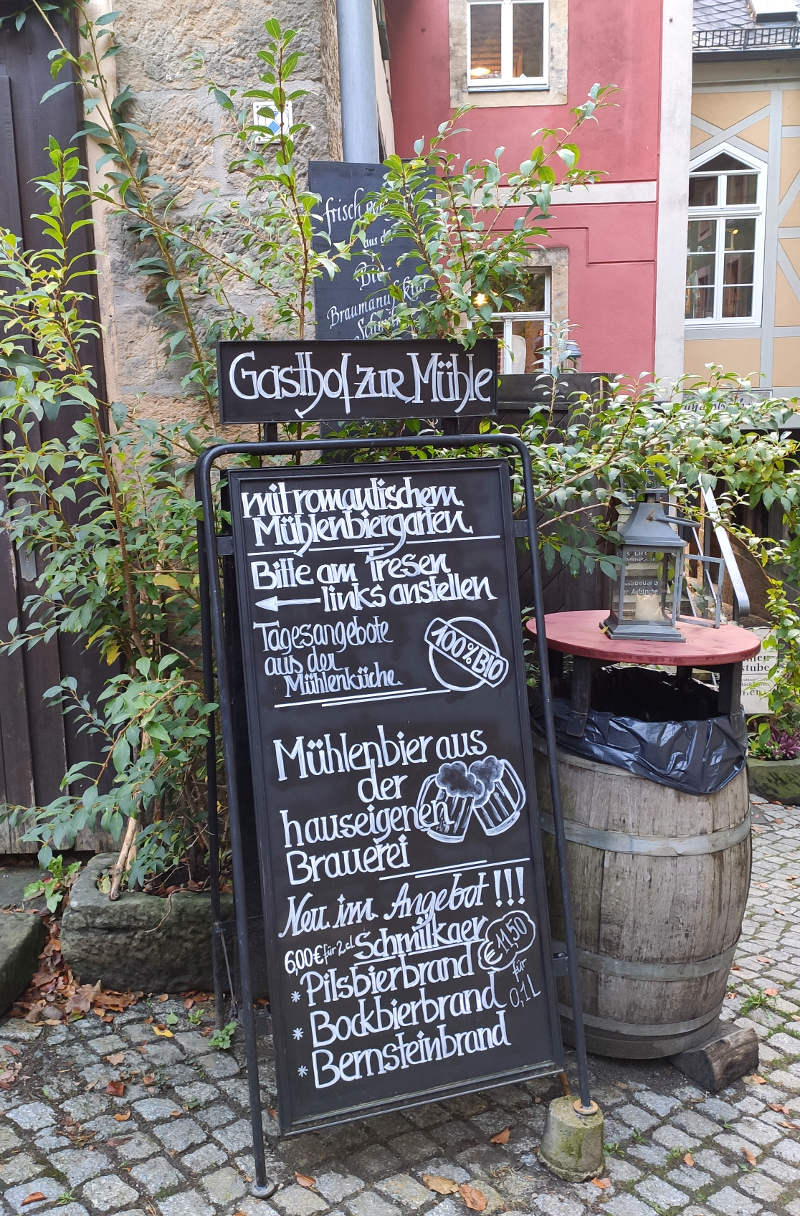 frisch
aus der
Bio
Braumanufaktur
Gasthof zur Mühle
mit romantischem
Mühlenbiergarten
Bitte am Tresen
links anstellen
Tagesangebote
aus der
Mühlenküche
100% BIO
Mühlenbier aus
der
hauseigenen
Brauerei
Neu im Angebot!!!
6,00€ für 2cl Schmilkaer
€ 11,50
für
0,1L
* Pilsbierbrand
* Bockbierbrand
* Bernsteinbrand